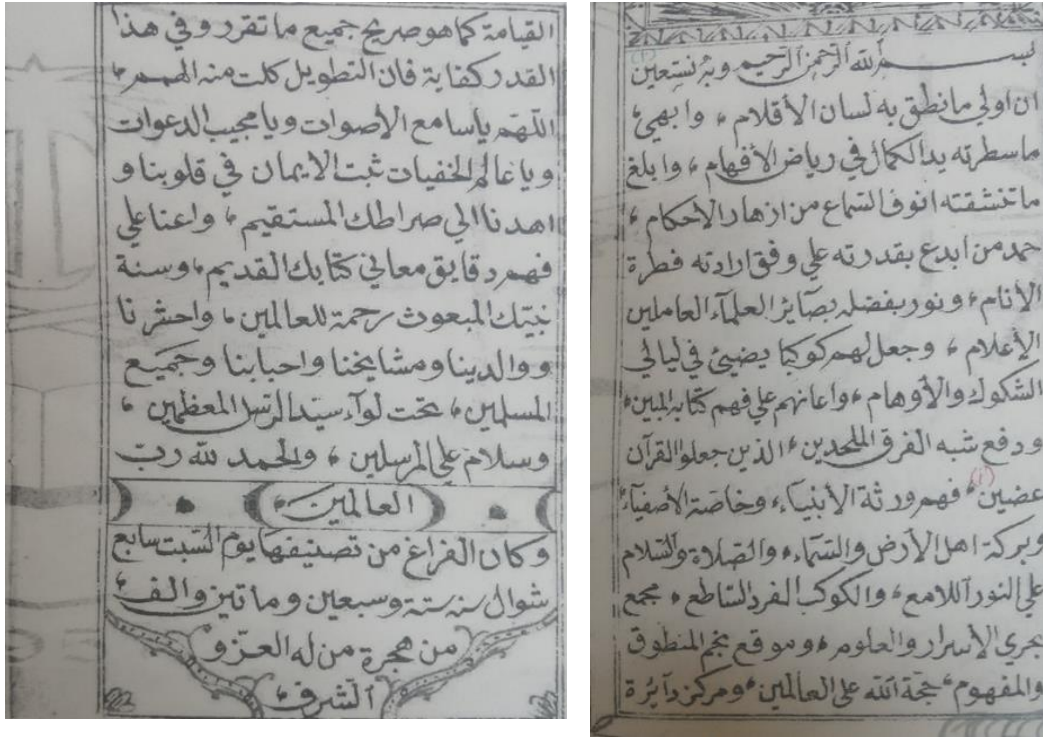 بسم الله الرحمن الرحيم وبه نستعين
ان اولي ما نطق به لسان الأقلام ، وابهي ،
ما سطرته يد الكمال في رياض الأفهام ، وابلغ
ما تنشقته انوف السماع من ازهار الأحكام ،
حمد من ابدع بقدرته علي وفق ارادته فطرة
الأنام ، ونور بفضله بصاير العلمآء العاملين
الأعلام ، وجعل لهم كوكبا يضيئ في ليالي
الشكوك والأوهام ، واعانهم علي فهم كتابه المبين ،
ودفع شبه الفرق الملحدين ، الذين جعلوا القرآن
عضين ، (١) فهم ورثة الأنبيآء ، وخاصة الأصفيآء ،
وبركة اهل الأرض والسمآء ، والصلاة والسلام
علي النور اللامع ، والكوكب الفرد الساطع ، مجمع
بحري الأسرار والعلوم ، وموقع نجم المنطوق
والمفهوم ، حجة الله علي العالمين ، ومركز دآئرة
القيامة كما هو صريح جميع ما تقرر وفي هذا
القدر كفاية فان التطويل كلت منه الهمم ،
اللهم يا سامع الأصوات ويا مجيب الدعوات
ويا عالم الخفيات ثبت الايمان في قلوبنا و
اهدنا الي صراطك المستقيم ، واعنا علي
فهم دقايق معاني كتابك القديم ، وسنة
نبيك المبعوث رحمة للعالمين ، واحشرنا
ووالدينا ومشايخنا واحبابنا وجميع
المسلمين ، تحت لوآء سيد الرسل المعظمين ،
وسلام علي المرسلين ، والحمد لله رب
العالمين ،
وكان الفراغ من تصنيفها يوم السبت سابع
شوال سنة ستة وسبعين وماتين والف ،
من هجرة من له العز و
الشرف ،